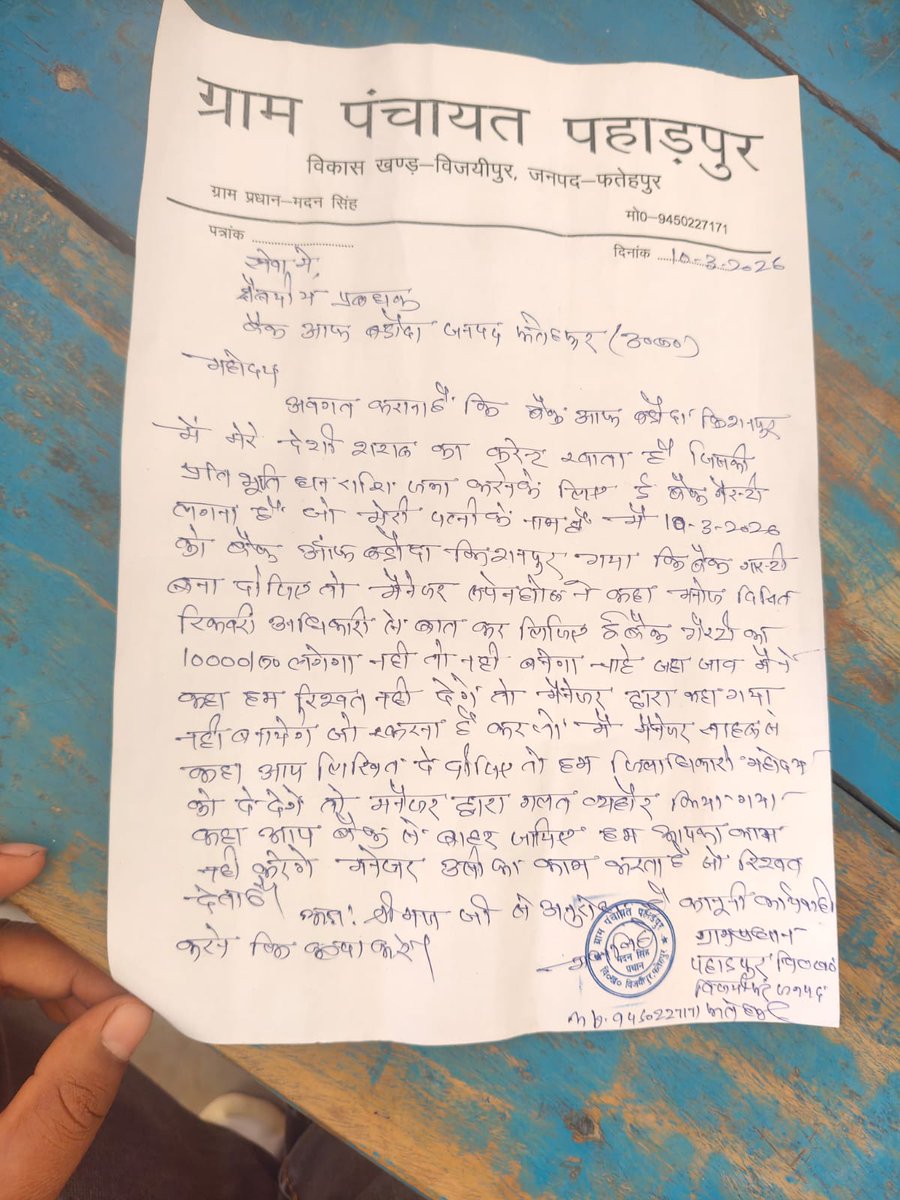 ग्राम पंचायत पहाड़पुर
विकास खण्ड़–विजयीपुर, जनपद–फतेहपुर
ग्राम प्रधान–मदन सिंह
मो0–9450227171
पत्रांक ..............................
दिनांक .....10-3-2026
सेवा मे,
क्षेत्रयीय प्रबधक
बैंक आफ बडौदा जनपद फतेहपुर (उ०प्र०)
महोदय
अवगत कराना है कि बैंक आफ बडौदा किशनपुर
में मेरे देशी शराब का करेन्ट खाता है जिसकी
प्रति भूति धनराशि जमा करने के लिए ई बैंक गैरन्टी
लगना है जो मेरी पत्नी के नाम है मै 10-3-2026
को बैंक आफ बडौदा किशनपुर गया कि बैंक गरन्टी
बना दीजिए तो मैनेजर ने कहा मनोज
रिकवरी अधिकारी से बात कर लिजिए ई बैंक गैरन्टी का
लगेगा नही तो नही बनेगा चाहे जहा जाव मैने
कहा हम रिश्वत नही देगें तो मैनेजर द्वारा कहा गया
नही बनायेगे जो करना है करलो मै मैनेजर साहब से
कहा आप लिखित दे दीजिए तो हम जिलाधिकारी महोदय
को दे देगें तो मनेजर द्वारा गलत व्यहार किया गया
कहा आप बैंक से बाहर जायिए हम आपका काम
नही करेगे मनेजर उसी का काम करता है जो रिश्वत
देता है।
अतः श्रीमान जी से अनुरोध है कानूनी कार्यवाही
करने कि कृपा करे।
ग्राम पंचायत पहाड़पुर
मदन सिंह
प्रधान
वि०ख० विजयीपुर, फतेहपुर
ग्रामप्रधान
पहाडपुर वि०ख०
विजयीपुर जनपद
फतेहपुर
mb. 9450227171